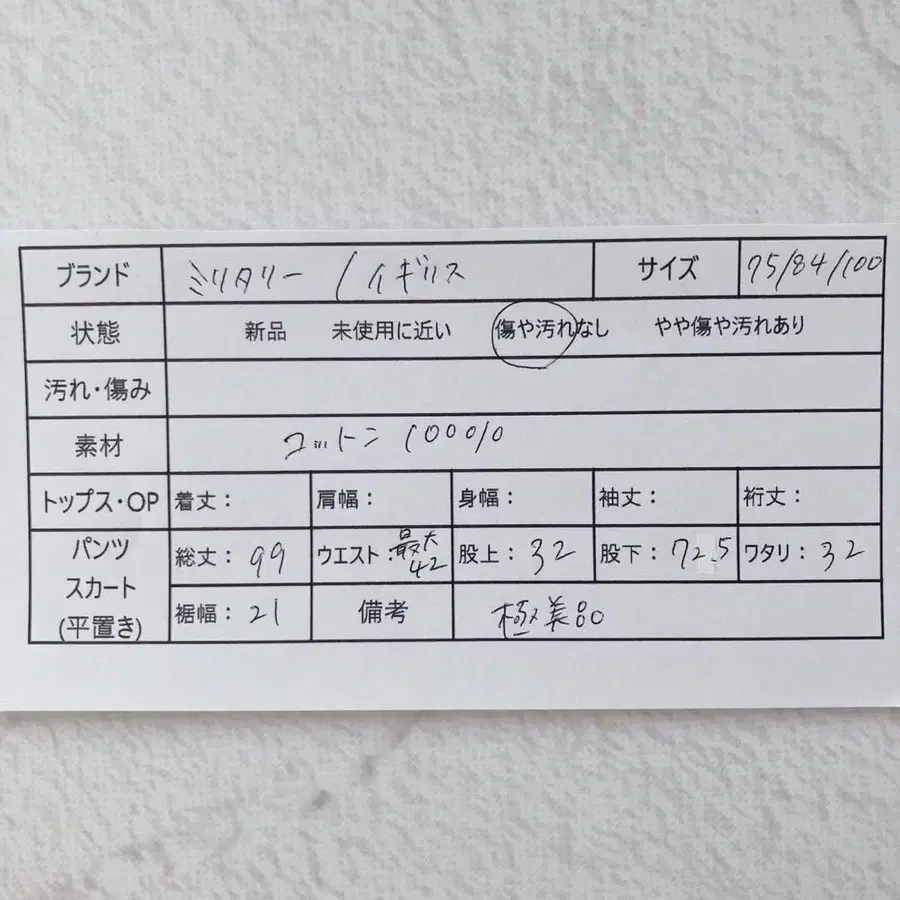 ブランド ミリタリー / イギリス サイズ 75/84/100
状態 新品 未使用に近い 傷や汚れなし やや傷や汚れあり
汚れ・傷み
素材 コットン 100%
トップス・OP 着丈： 肩幅： 身幅： 袖丈： 裄丈：
パンツ スカート (平置き) 総丈：99 ウエスト：最大42 股上：32 股下：72.5 ワタリ：32
裾幅：21 備考 極美品